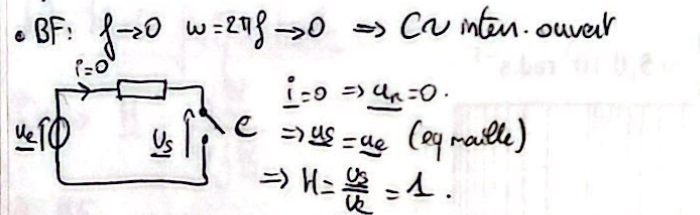 • BF: f→0 ω=2πf→0 ⇒ C ~ inter. ouvert
i=0
ue
us
C
i=0 ⇒ ur=0.
⇒ us = ue (eq maille)
⇒ H = us/ue = 1.